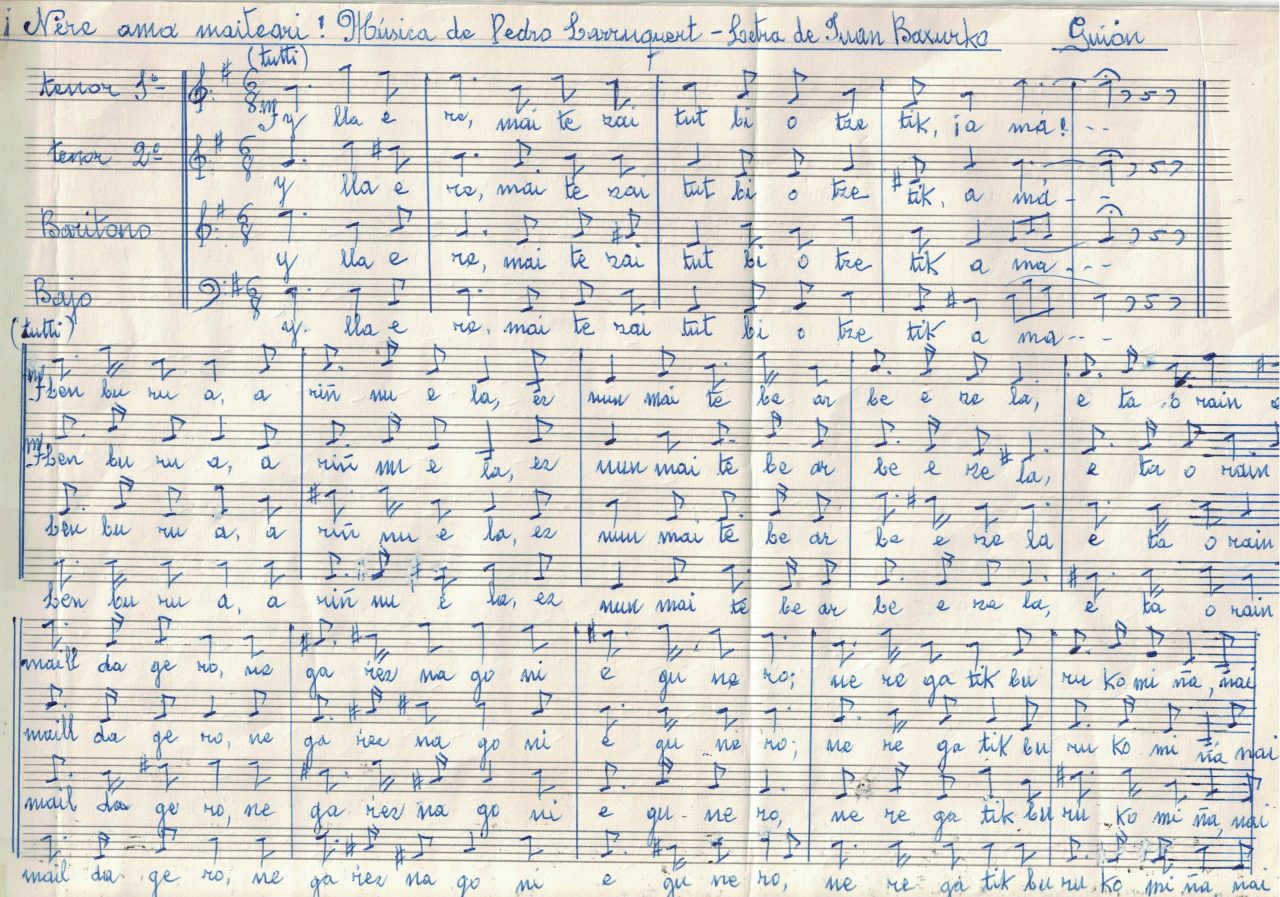 ¡ Nere ama maiteari! Música de Pedro Larruquert - Letra de Iván Baxurko Guión
(tutti)
tenor 1º
mf
y lla e re, mai te zai tut bi o tze tik, ¡a má! - -
tenor 2º
y lla e re, mai te zai tut bi o tze tik, a má - -
Baritono
y lla e re, mai te zai tut bi o tze tik a ma - - -
Bajo
y lla e re, mai te zai tut bi o tze tik a ma - - -
(tutti)
mf
ben bu ru a, a riñ nu e la, ez nun mai te be ar be e re la, e ta o rain
mf
ben bu ru a, a riñ nu e la, ez nun mai te be ar be e re la, e ta o rain
ben bu ru a, a riñ nu e la, ez nun mai te be ar be e re la e ta o rain
ben bu ru a, a riñ nu e la, ez nun mai te be ar be e re la, e ta o rain
maill da ge ro, ne ga rez na go ni e gu ne ro; ne re ga tik bu ru ko mi ña, nai
maill da ge ro, ne ga rez na go ni e gu ne ro; ne re ga tik bu ru ko mi ña nai
mail da ge ro, ne ga rez na go ni e gu - ne ro, ne re ga tik bu ru ko mi ña, nai
mail da ge ro, ne ga rez na go ni e gu ne ro, ne re ga tik bu ru ko mi ña, nai